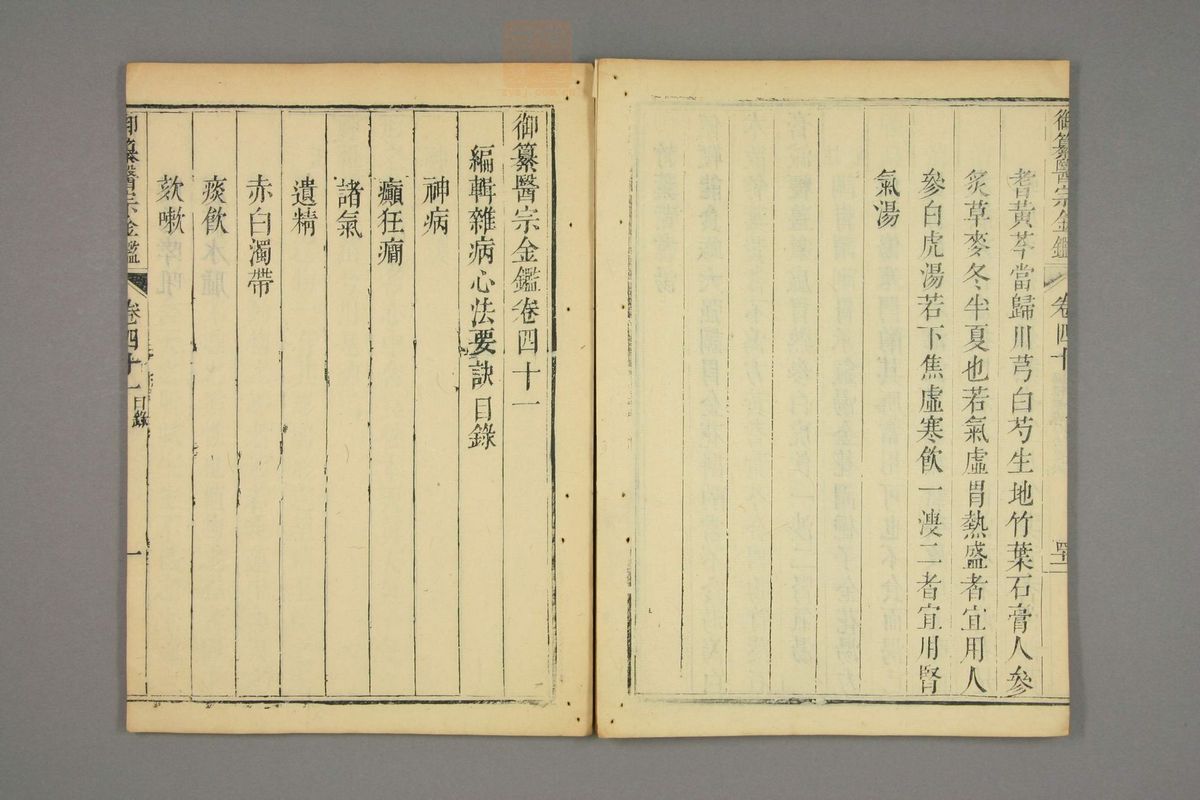 御纂醫宗金鑑 卷四十 四二
耆黃芩當歸川芎白芍生地竹葉石膏人參
炙草麥冬半夏也若氣虛胃熱盛者宜用人
參白虎湯若下焦虛寒飲一溲二者宜用腎
氣湯
御纂醫宗金鑑卷四十一
編輯雜病心法要訣目錄
神病
癲狂癎
諸氣
遺精
赤白濁帶
痰飲
欬嗽
御纂醫宗金鑑 卷四十一目錄 一